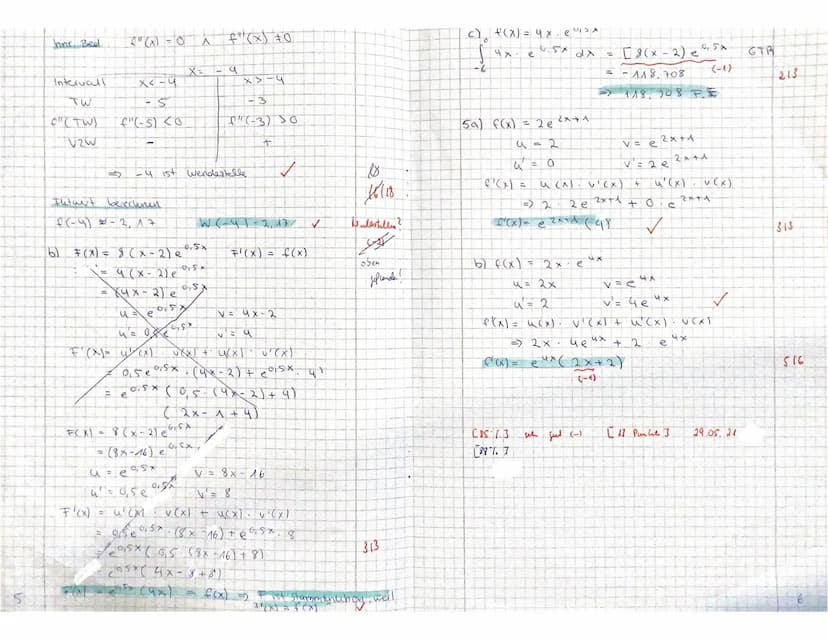 hinr. Bed f''(x) = 0 ∧ f'''(x) ≠ 0
x = -4
Intervall x < -4 x > -4
TW -5 -3
f''(TW) f''(-5) < 0 f''(-3) > 0
VZW - +
⇒ -4 ist Wendestelle ✓
18
16/18
f(-4) ≈ -2,17 W(-4|-2,17 ✓
(-2)
oben
gefunden!
b) F(x) = 8(x-2)e^0,5x F'(x) = f(x)
= 4(x-2)e^0,5x
= (4x-2)e^0,5x
u = e^0,5x v = 4x-2
u' = 0,5e^0,5x v' = 4
F'(x) = u'(x) · v(x) + u(x) · v'(x)
= 0,5e^0,5x · (4x-2) + e^0,5x · 4
= e^0,5x (0,5 · (4x-2) + 4)
(2x - 1 + 4)
F(x) = 8(x-2)e^0,5x
= (8x-16)e^0,5x
u = e^0,5x v = 8x - 16
u' = 0,5e^0,5x v' = 8
F'(x) = u'(x) · v(x) + u(x) · v'(x)
= 0,5e^0,5x · (8x-16) + e^0,5x · 8
3/3
= e^0,5x (0,5 · (8x-16) + 8)
= e^0,5x (4x - 8 + 8)
= e^0,5x (4x) = f(x) ⇒ F ist Stammfunktion, weil
F'(x) = f(x) ✓
5
c) f(x) = 4x · e^0,5x
0∫-6 4x · e^0,5x dx = [8(x-2)e^0,5x GTR
= -118,708 (-1)
2/3
⇒ 118,708 F.E
5a) f(x) = 2e^2x+1
u = 2 v = e^2x+1
u' = 0 v' = 2e^2x+1
f'(x) = u(x) · v'(x) + u'(x) · v(x)
⇒ 2 · 2e^2x+1 + 0 · e^2x+1
f'(x) = e^2x+1 (4) ✓
3/3
b) f(x) = 2x · e^4x
u = 2x v = e^4x
u' = 2 v' = 4e^4x ✓
f'(x) = u(x) · v'(x) + u'(x) · v(x)
⇒ 2x · 4e^4x + 2 · e^4x
f'(x) = e^4x (2x+2)
5/6
(-1)
[85%] sehr gut (-) [13 Punkte] 29.05.21
6